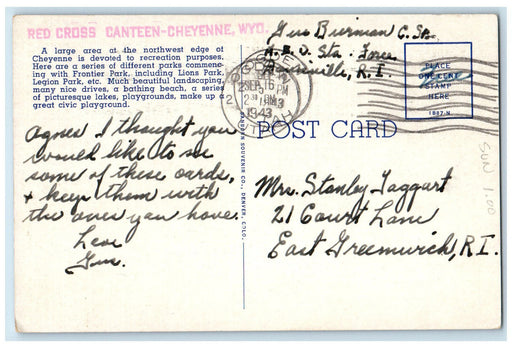 RED CROSS CANTEEN-CHEYENNE, WYO.
A large area at the northwest edge of
Cheyenne is devoted to recreation purposes.
Here are a series of different parks commenc-
ing with Frontier Park, including Lions Park,
Legion Park, etc. Much beautiful landscaping,
many nice drives, a bathing beach, a series
of picturesque lakes, playgrounds, make up a
great civic playground.
Agnes I thought you
would like to see
some of these cards,
+ keep them with
the ones you have.
Love
Gus.
SANBORN SOUVENIR CO., DENVER, COLO.
Gus Burman C. Sp.
Sta. Force
R.I.
OGDEN
SEP 16
PM
1943
UTAH
PLACE
ONE CENT
STAMP
HERE
POST CARD
Mrs. Stanley Taggart
21 Court Lane
East Greenwich, R.I.
SUN 1.00